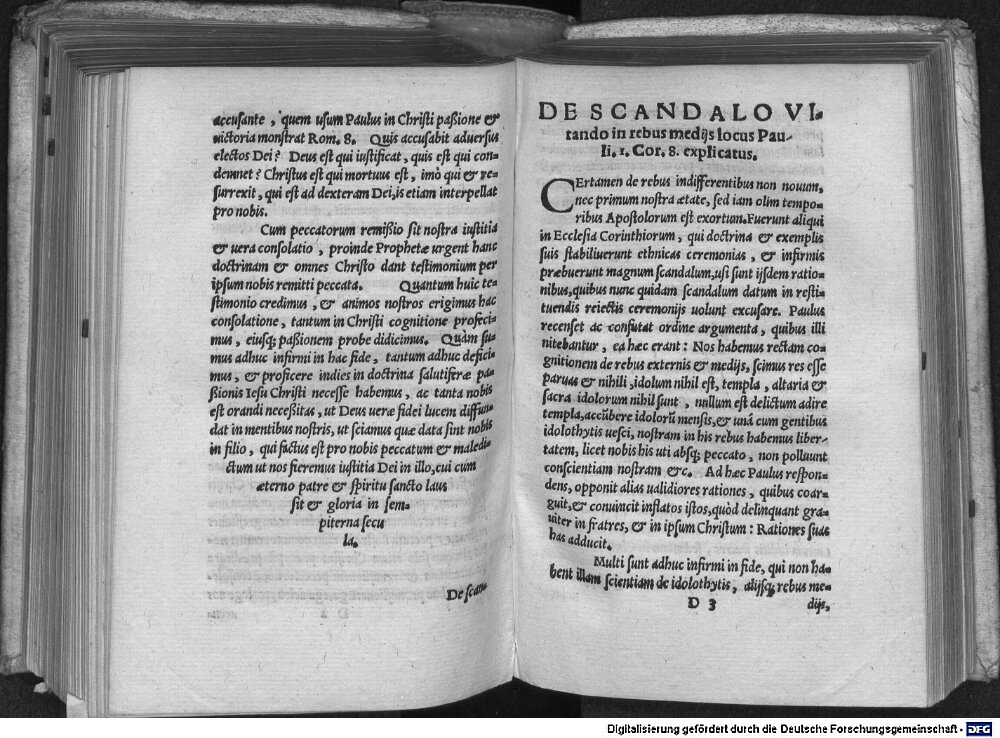 accusante, quem usum Paulus in Christi paßione &
uictoria monstrat Rom. 8. Quis accusabit aduersus
electos Dei? Deus est qui iustificat, quis est qui con-
demnet? Christus est qui mortuus est, imò qui & re-
surrexit, qui est ad dexteram Dei, is etiam interpellat
pro nobis.
Cum peccatorum remißio sit nostra iustitia
& uera consolatio, proinde Prophetæ urgent hanc
doctrinam & omnes Christo dant testimonium per
ipsum nobis remitti peccata. Quantum huic te-
stimonio credimus, & animos nostros erigimus hac
consolatione, tantum in Christi cognitione profeci-
mus, eiusq; paßionem probe didicimus. Quàm su-
mus adhuc infirmi in hac fide, tantum adhuc defici-
mus, & proficere indies in doctrina salutiferæ pa-
ßionis Iesu Christi necesse habemus, ac tanta nobis
est orandi neceßitas, ut Deus ueræ fidei lucem diffun-
dat in mentibus nostris, ut sciamus quæ data sint nobis
in filio, qui factus est pro nobis peccatum & maledi-
ctum ut nos fieremus iustitia Dei in illo, cui cum
æterno patre & spiritu sancto laus
sit & gloria in sem-
piterna secu
la.
De scan-
DE SCANDALO VI-
tando in rebus medijs locus Pau-
li. 1. Cor. 8. explicatus.
CErtamen de rebus indifferentibus non nouum,
nec primum nostra ætate, sed iam olim tempo-
ribus Apostolorum est exortum. Fuerunt aliqui
in Ecclesia Corinthiorum, qui doctrina & exemplis
suis stabiliuerunt ethnicas ceremonias, & infirmis
præbuerunt magnum scandalum, usi sunt ijsdem ratio-
nibus, quibus nunc quidam scandalum datum in resti-
tuendis reiectis ceremonijs uolunt excusare. Paulus
recenset ac confutat ordine argumenta, quibus illi
nitebantur, ea hæc erant: Nos habemus rectam co-
gnitionem de rebus externis & medijs, scimus res esse
paruas & nihili, idolum nihil est, templa, altaria &
sacra idolorum nihil sunt, nullum est delictum adire
templa, accūbere idolorū mensis, & unà cum gentibus
idolothytis uesci, nostram in his rebus habemus liber-
tatem, licet nobis his uti absq; peccato, non polluunt
conscientiam nostram &c. Ad hæc Paulus respon-
dens, opponit alias ualidiores rationes, quibus coar-
guit, & conuincit inflatos istos, quòd delinquant gra-
uiter in fratres, & in ipsum Christum: Rationes suas
has adducit.
Multi sunt adhuc infirmi in fide, qui non ha-
bent illam scientiam de idolothytis, alijsq; rebus me-
D 3 dijs,
Digitalisierung gefördert durch die Deutsche Forschungsgemeinschaft - DFG